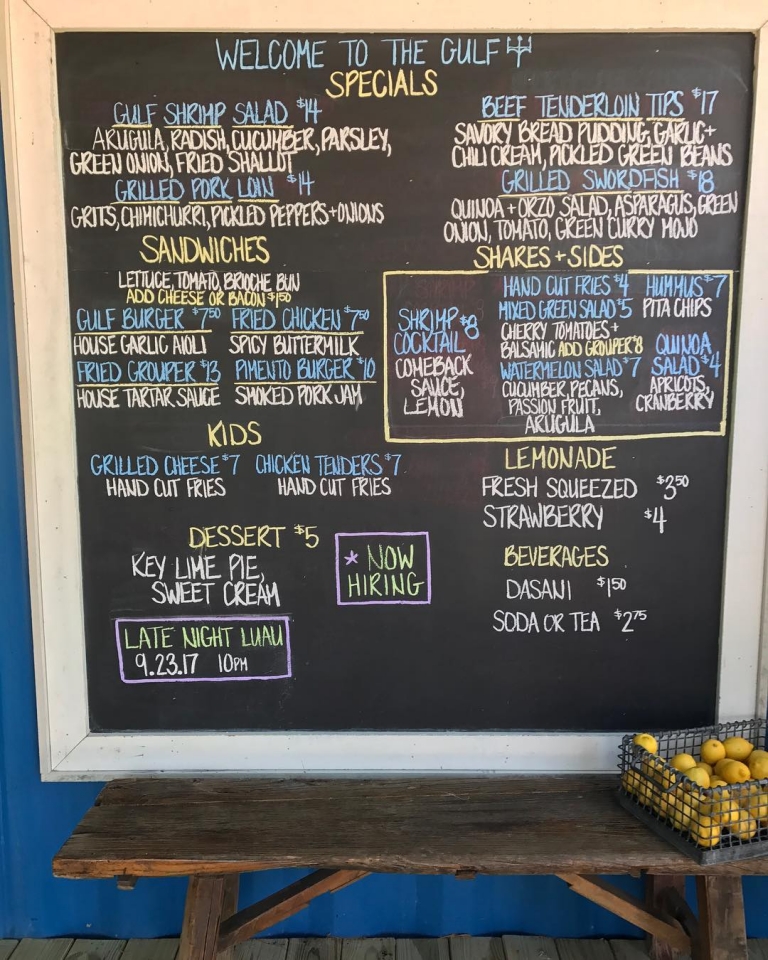 WELCOME TO THE GULF
SPECIALS
GULF SHRIMP SALAD $14
ARUGULA, RADISH, CUCUMBER, PARSLEY,
GREEN ONION, FRIED SHALLOT
GRILLED PORK LOIN $14
GRITS, CHIMICHURRI, PICKLED PEPPERS + ONIONS
BEEF TENDERLOIN TIPS $17
SAVORY BREAD PUDDING, GARLIC +
CHILI CREAM, PICKLED GREEN BEANS
GRILLED SWORDFISH $18
QUINOA + ORZO SALAD, ASPARAGUS, GREEN
ONION, TOMATO, GREEN CURRY MOJO
SANDWICHES
LETTUCE, TOMATO, BRIOCHE BUN
ADD CHEESE OR BACON $1.50
GULF BURGER $7.50
HOUSE GARLIC AIOLI
FRIED CHICKEN $7.50
SPICY BUTTERMILK
FRIED GROUPER $13
HOUSE TARTAR SAUCE
PIMENTO BURGER $10
SMOKED PORK JAM
SHARES + SIDES
SHRIMP $8
COCKTAIL
COMEBACK
SAUCE,
LEMON
HAND CUT FRIES $4
MIXED GREEN SALAD $5
CHERRY TOMATOES +
BALSAMIC ADD GROUPER $8
WATERMELON SALAD $7
CUCUMBER, PECANS,
PASSION FRUIT,
ARUGULA
HUMMUS $7
PITA CHIPS
QUINOA
SALAD $4
APRICOTS,
CRANBERRY
KIDS
GRILLED CHEESE $7
HAND CUT FRIES
CHICKEN TENDERS $7
HAND CUT FRIES
DESSERT $5
KEY LIME PIE,
SWEET CREAM
* NOW
HIRING
LATE NIGHT LUAU
9.23.17 10PM
LEMONADE
FRESH SQUEEZED $3.50
STRAWBERRY $4
BEVERAGES
DASANI $1.50
SODA OR TEA $2.75